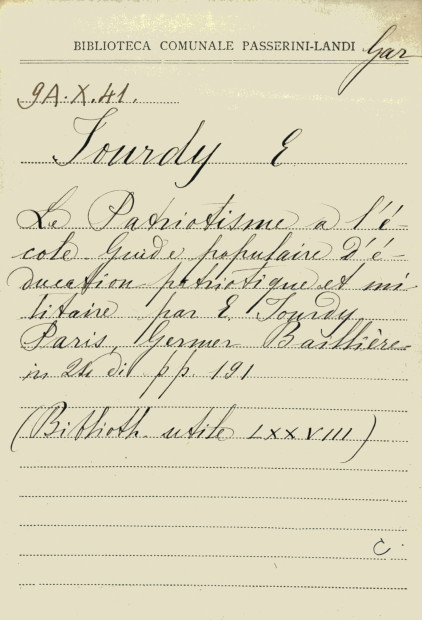 BIBLIOTECA COMUNALE PASSERINI-LANDI
Gar
9A.X.41.
Jourdy E
Le Patriotisme a l'é-
cole Guide populaire d'é-
ducation patriotique et mi
litaire par E Jourdy
Paris, Germer Baillière
in 24 di pp 191
(Biblioth. utile LXXVIII)
C.